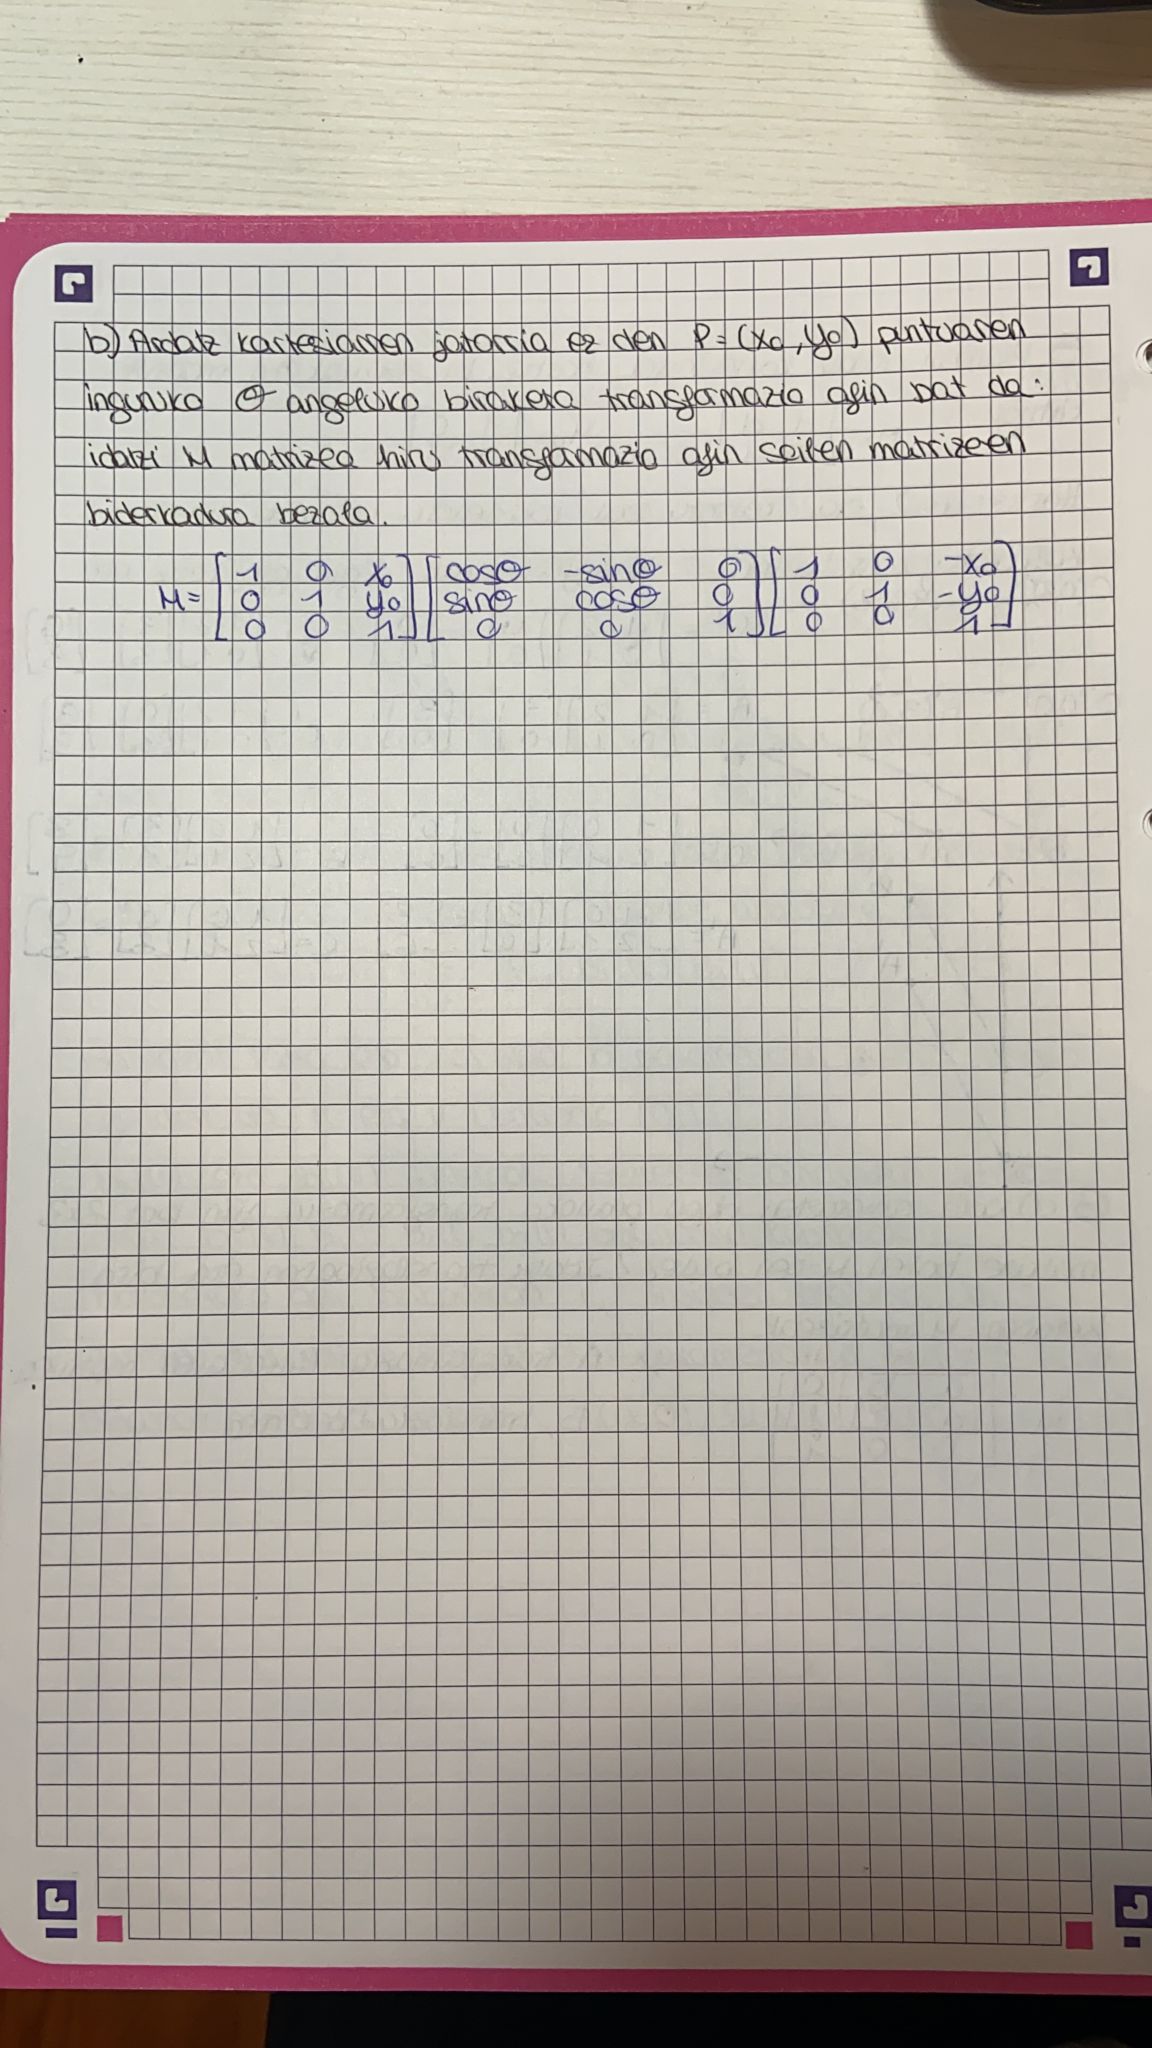 b) Ardatz kartesiarren jatorria ez den P=(x₀,y₀) puntuaren
inguruko θ angeluko biraketa transformazio afin bat da:
idatzi M matrizea hiru transformazio afin seilen matrizeen
biderkadura bezala.
M= [1 0 x₀] [cosθ -sinθ 0] [1 0 -x₀]
[0 1 y₀] [sinθ cosθ 0] [0 1 -y₀]
[0 0 1] [0 0 1] [0 0 1]